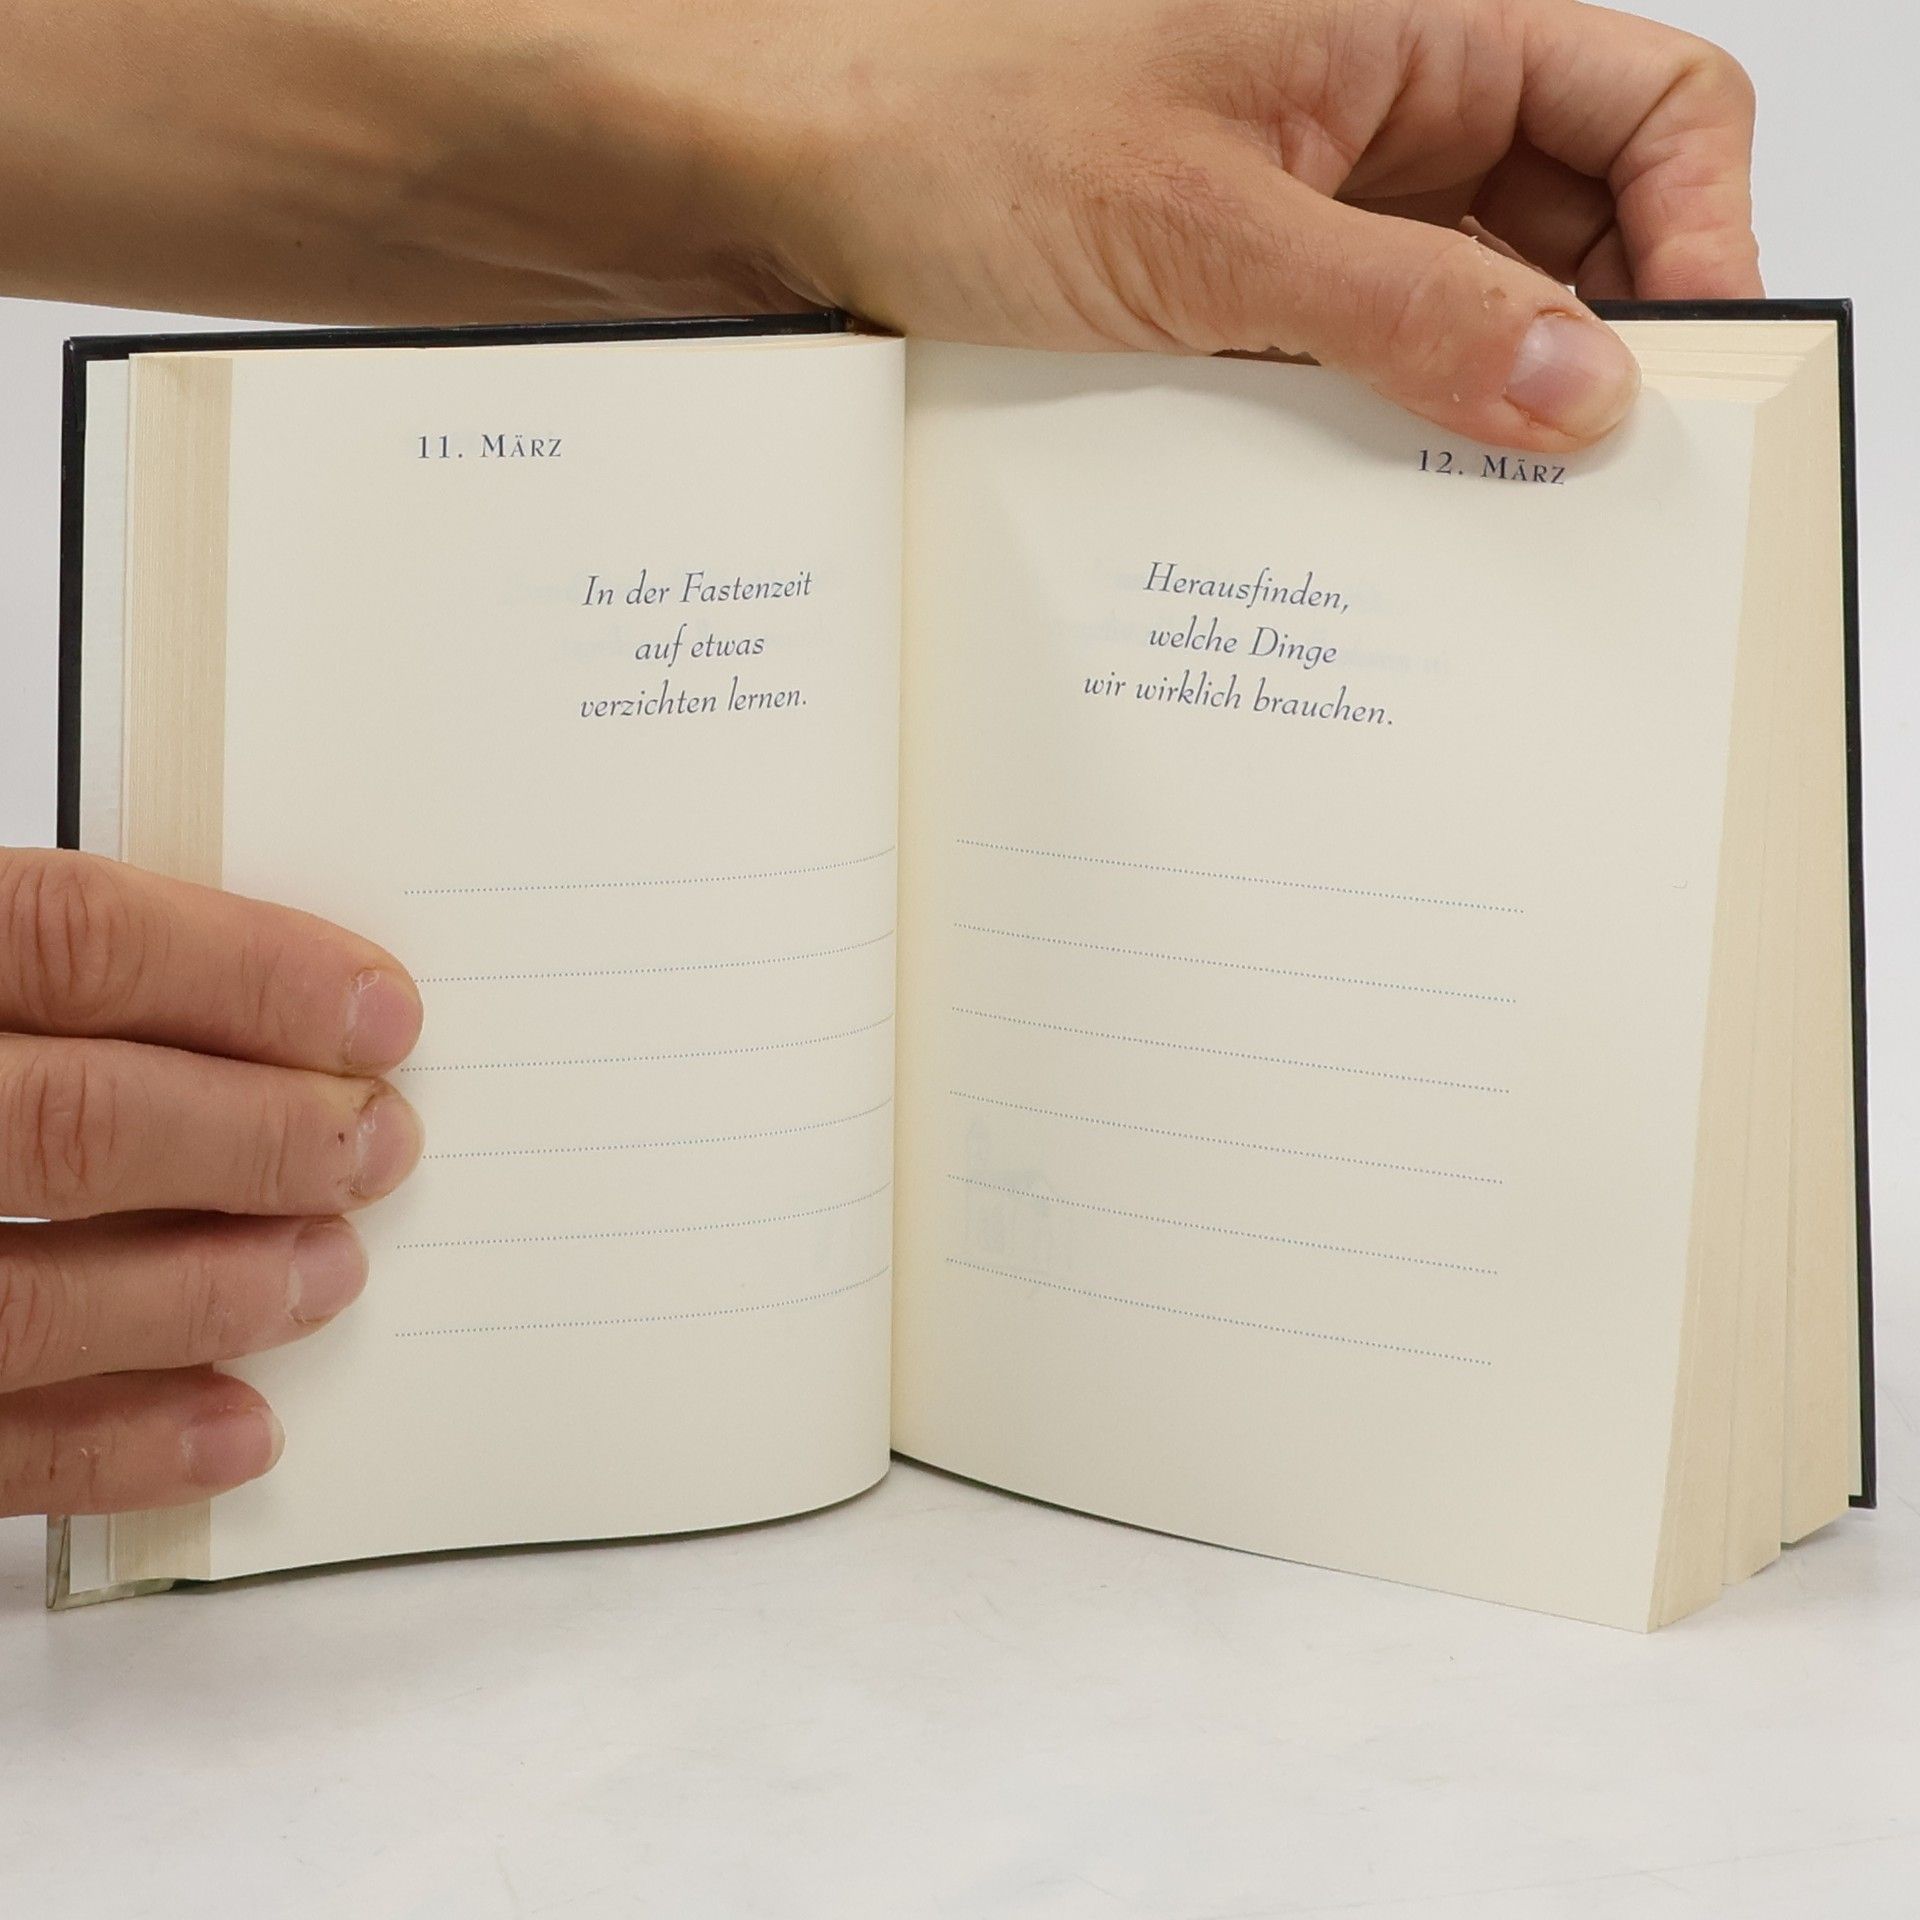 11. MÄRZ
In der Fastenzeit
auf etwas
verzichten lernen.
12. MÄRZ
Herausfinden,
welche Dinge
wir wirklich brauchen.